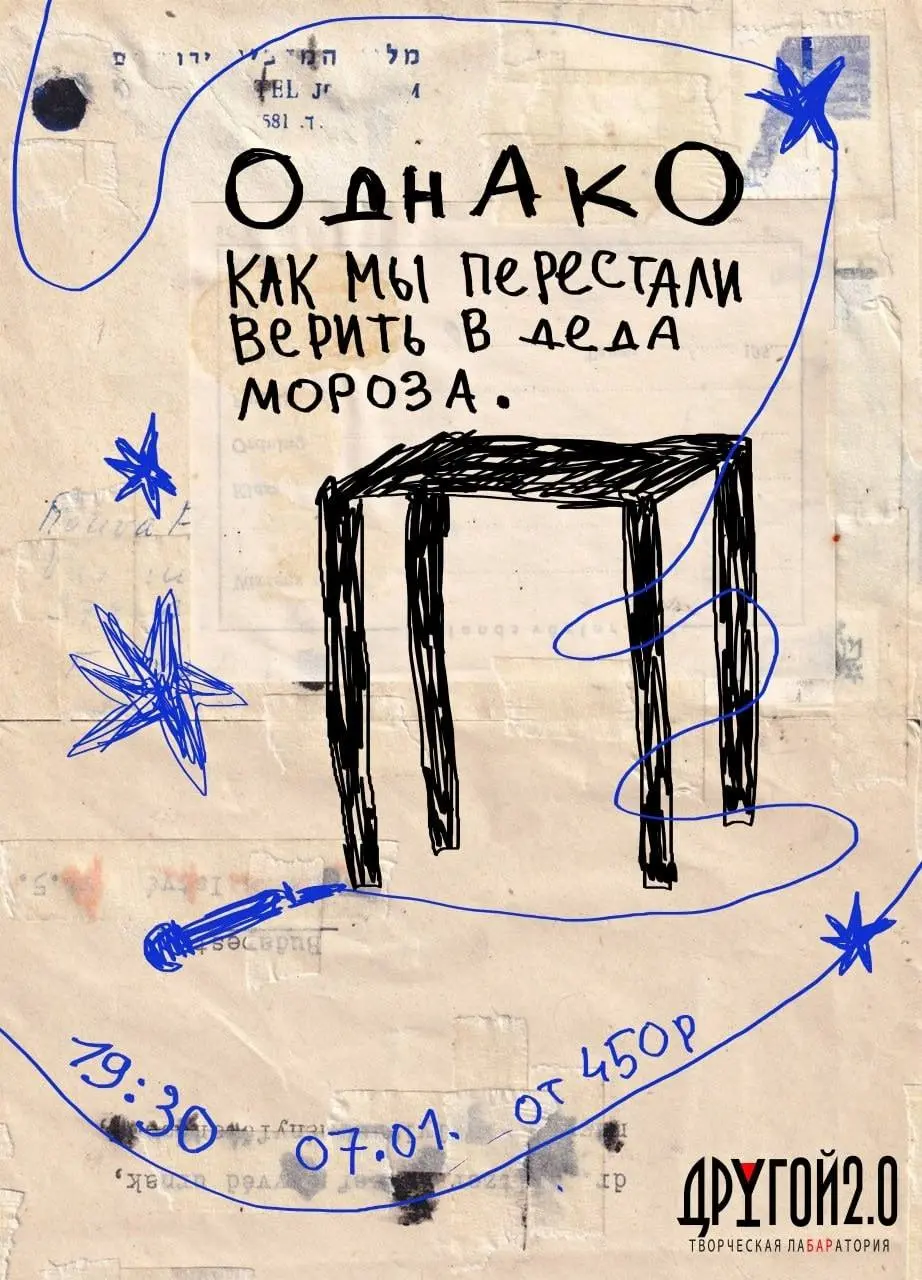 TEL
581 .T.
ОДНАКО
КАК МЫ ПЕРЕСТАЛИ
ВЕРИТЬ В ДЕДА
МОРОЗА.
19:30 07.01. ОТ 450Р
ДРУГОЙ2.0
ТВОРЧЕСКАЯ ЛАБАРАТОРИЯ